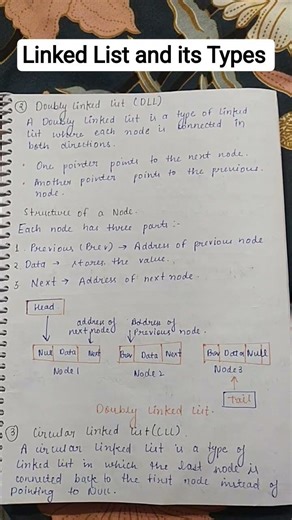 Linked List and its Types
② Doubly linked list (DLL)
A Doubly linked list is a type of linked
list where each node is connected in
both directions.
• One pointer points to the next node.
• Another pointer points to the previous
node.
Structure of a Node.
Each node has three parts :-
1. Previous (Prev) → Address of previous node
2 Data → stores the value.
3 Next → Address of next node.
Head
address of next node
Address of Previous node.
Null Data Next
Prev Data Next
Prev Data Null
Node 1
Node 2
Node 3
Tail
Doubly Linked List.
③ Circular linked list (CLL)
A circular linked list is a type of
linked list in which the last node is
connected back to the first node instead of
pointing to NULL.